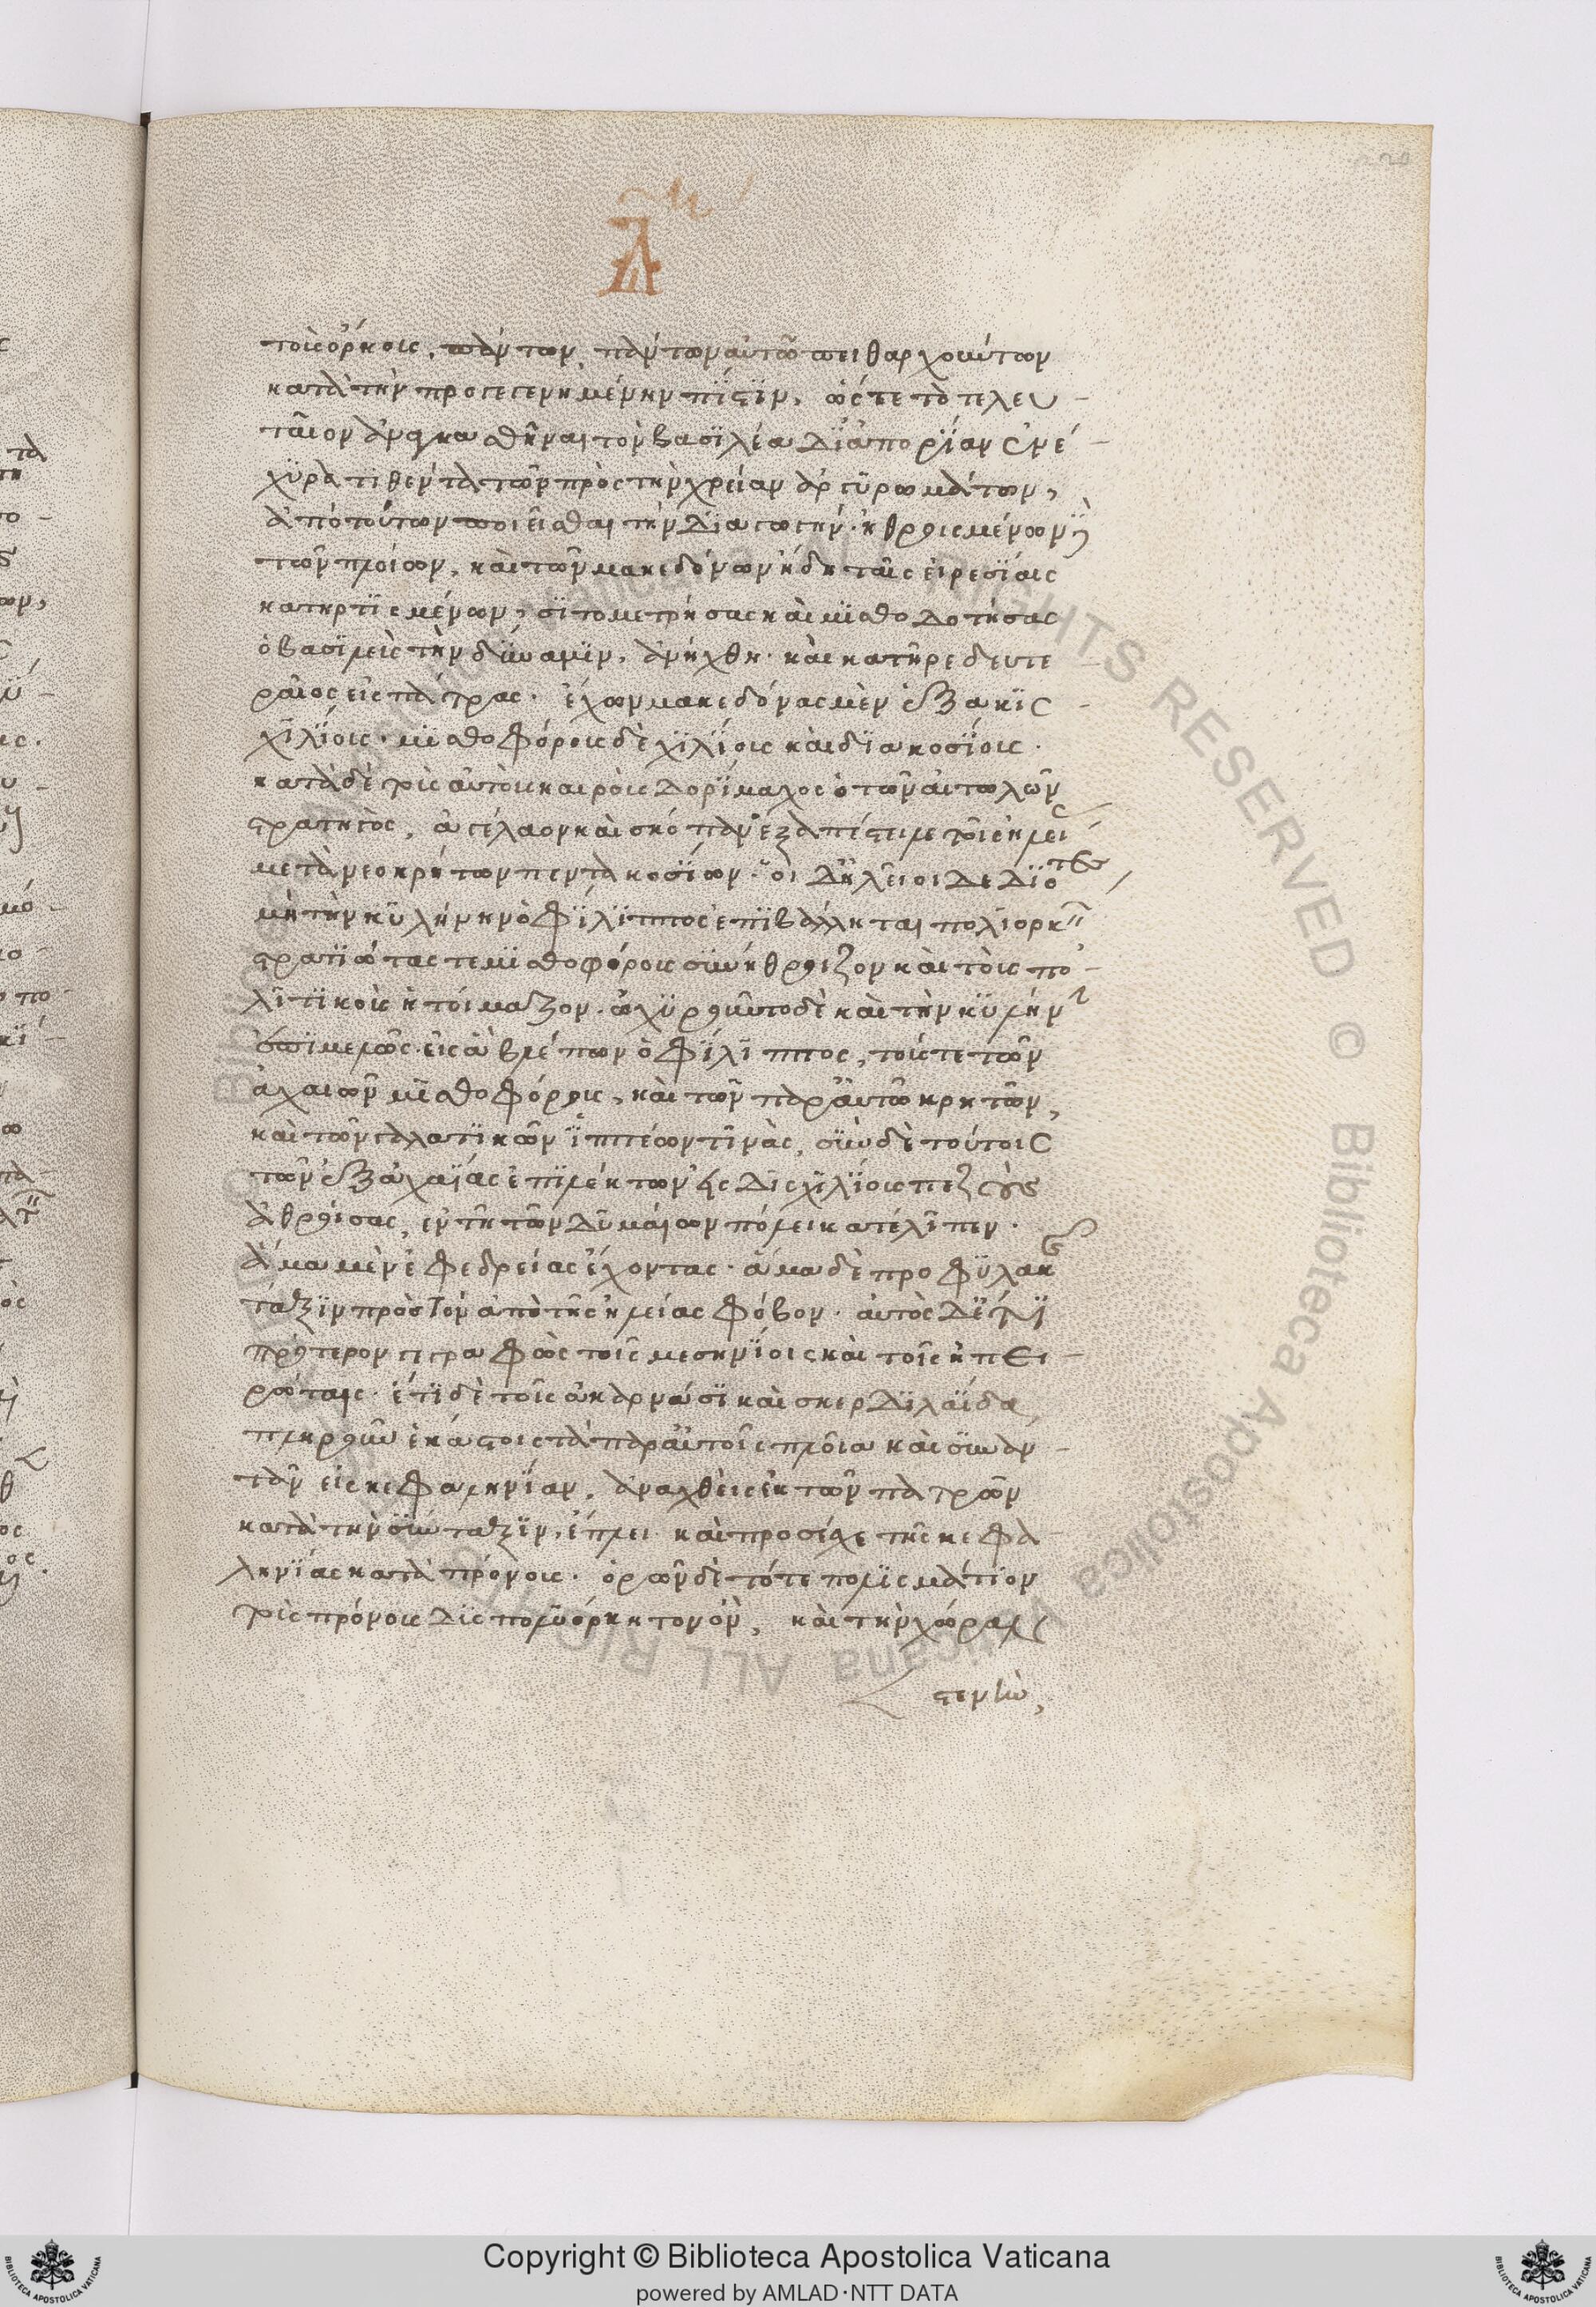 τοὺς ὅρκους, πάντων πάντων αὐτῶ πειθαρχούντων
κατὰ τὴν προγεγενημένην πίστιν, ὥστε τὸ τελευ-
ταῖον ἀναγκασθῆναι τὸν βασιλέα δι' ἀπορίαν ἐνέ-
χυρα τιθέντα τῶν πρὸς τὴν χρείαν ἀργυρωμάτων,
ἀπὸ τούτων ποιεῖσθαι τὴν διαγωγήν. ἡθροισμένων δὲ
τῶν πλοίων, καὶ τῶν μακεδόνων ἤδη ταῖς εἰρεσίαις
κατηρτισμένων, σιτομετρήσας καὶ μισθοδοτήσας
ὁ βασιλεὺς τὴν δύναμιν, ἀνήχθη. καὶ κατῆρε δευτε
ραῖος εἰς πάτρας. ἔχων μακεδόνας μὲν ἑξακις
χιλίους. μισθοφόρους δὲ χιλίους καὶ διακοσίους.
κατὰ δὲ τοὺς αὐτοὺς καιροὺς δορίμαχος ὁ τῶν αἰτωλῶν
στρατηγὸς, ἀγέλαον καὶ σκόπαν ἐξαπέστειλε τοῖς ἠλείοις
μετὰ νεοκρήτων πεντακοσίων. οἱ δ' ἠλεῖοι δεδιότες
μὴ τὴν κυλήνην ὁ φίλιππος ἐπιβάλληται πολιορκεῖν
στρατιώτας τε μισθοφόρους συνήθροιζον καὶ τοὺς πο-
λιτικοὺς ἡτοίμαζον. ὠχυροῦντο δὲ καὶ τὴν κυλήνην
ἐπιμελῶς. εἰς ἃ βλέπων ὁ φίλιππος, τούς τε τῶν
ἀχαιῶν μισθοφόρους, καὶ τῶν παρ' αὐτῶ κρητῶν,
καὶ τῶν γαλατικῶν ἱππέων τινὰς, σὺν δὲ τούτοις
τῶν ἐξ ἀχαΐας ἐπιλέκτων εἰς δισχιλίους πεζοὺς
ἀθροίσας, ἐν τῆ τῶν δυμαίων πόλει κατέλιπεν.
ἅμα μὲν ἐφεδρείας ἔχοντας. ἅμα δὲ προφυλακῆς
τάξιν πρὸς τὸν ἀπὸ τῆς ἠλείας φόβον. αὐτὸς δὲ ἔτι
πρότερον γεγραφὼς τοῖς μεσηνίοις καὶ τοῖς ἠπει-
ρώταις. ἔτι δὲ τοῖς ἀκαρνάσι καὶ σκερδιλαΐδα,
πληροῦν ἑκάστους τὰ παρ' αὐτοῖς πλοῖα καὶ συναν-
τᾶν εἰς κεφαληνίαν, ἀναχθεὶς ἐκ τῶν πατρῶν
κατὰ τὴν σύνταξιν, ἔπλει. καὶ προσέσχε τῆς κεφα
ληνίας κατὰ πρόννους. ὁρῶν δὲ τό τε πολισμάτιον
τοὺς πρόννους δυσπολιόρκητον ὂν, καὶ τὴν χώραν
στενὴν,